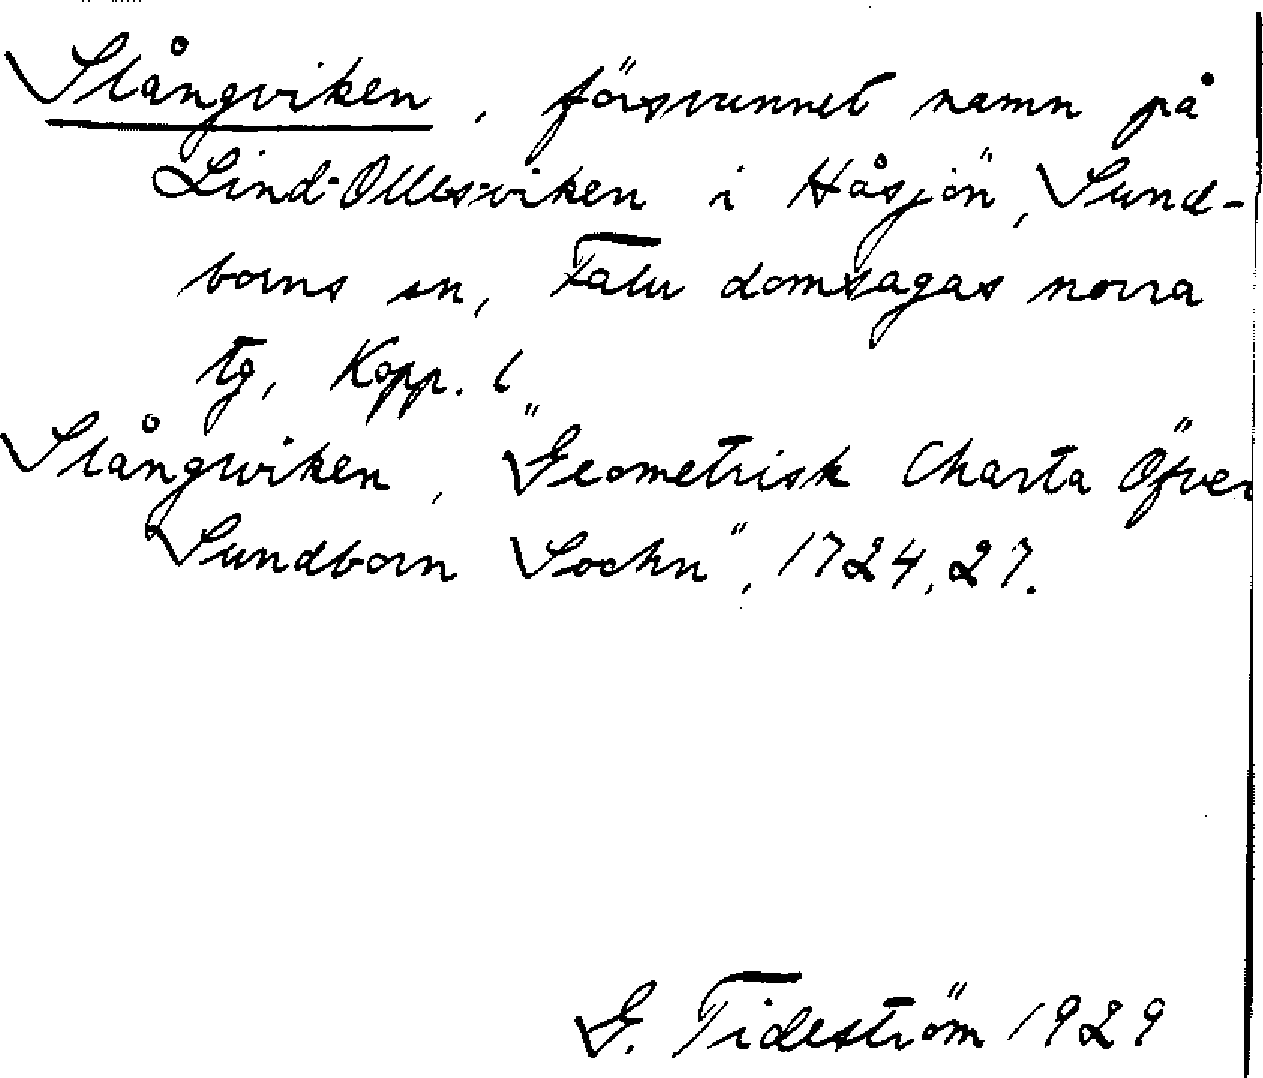 Slångviken, försvunnet namn på
Lind-Ollesviken i Håsjön, Sund-
borns sn, Falu domsagas norra
tg, Kopp. l
Slångwiken, "Geometrisk Charta Öfver
Sundborn Sochn", 1724, 27.
G. Tideström 1929